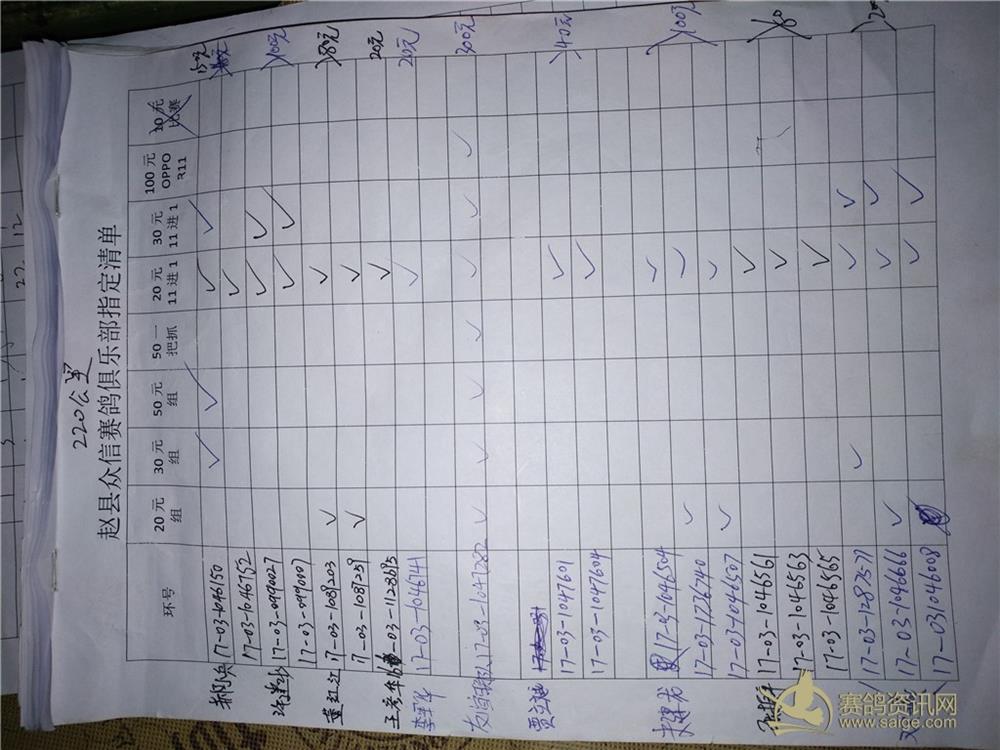 220公里
赵县众信赛鸽俱乐部指定清单
环号 20元组 30元组 50元组 50一把抓 20元11进1 30元11进1 100元OPPO R11 10元比赛
17-03-1046150
17-03-1046752
17-03-0990027 100元
17-03-0990007
董红江 17-03-1089203
17-03-1089259
17-03-1128695 20元
李军华 17-03-1046741 20元
17-03-1047282 300元
贾立涵
17-03-1047601 40元
17-03-1047604
17-03-1046504 100元
17-03-1226740
17-03-1046507
17-03-1046561 60
17-03-1046563
17-03-1046565
17-03-1283577
17-03-1046666
17-031046008
赛鸽资讯网
www.saige.com